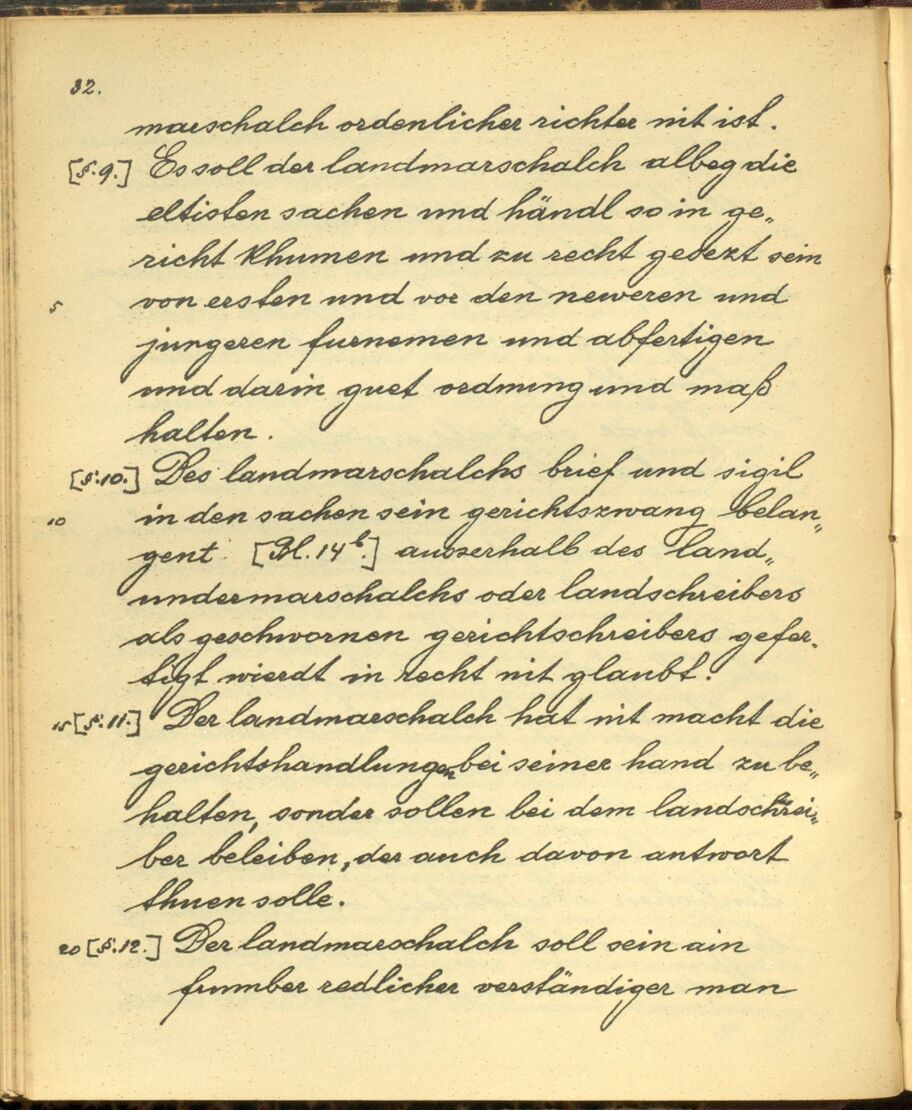 32.
marschalch ordenlicher richter nit ist.
[§.9.] Es soll der landmarschalch albeg die
eltisten sachen und händl so in ge„
richt khumen und zu recht gesezt sein
5 von ersten und vor den neweren und
jungeren furnemen und abfertigen
und darin guet ordnung und maß
halten.
[§.10.] Des landmarschalchs brief und sigil
10 in den sachen sein gerichtszwang belan„
gent [Bl. 14b.] ausserhalb des land„
undermarschalchs oder landschreibers
als geschwornen gerichtschreibers gefer„
tigt wierdt in recht nit glaubt.
15 [§.11.] Der landmarschalch hat nit macht die
gerichtshandlungen bei seiner hand zu be„
halten, sonder sollen bei dem landschrei„
ber beleiben, der auch davon antwort
thuen solle.
20 [§.12.] Der landmarschalch soll sein ain
frumber redlicher verständiger man